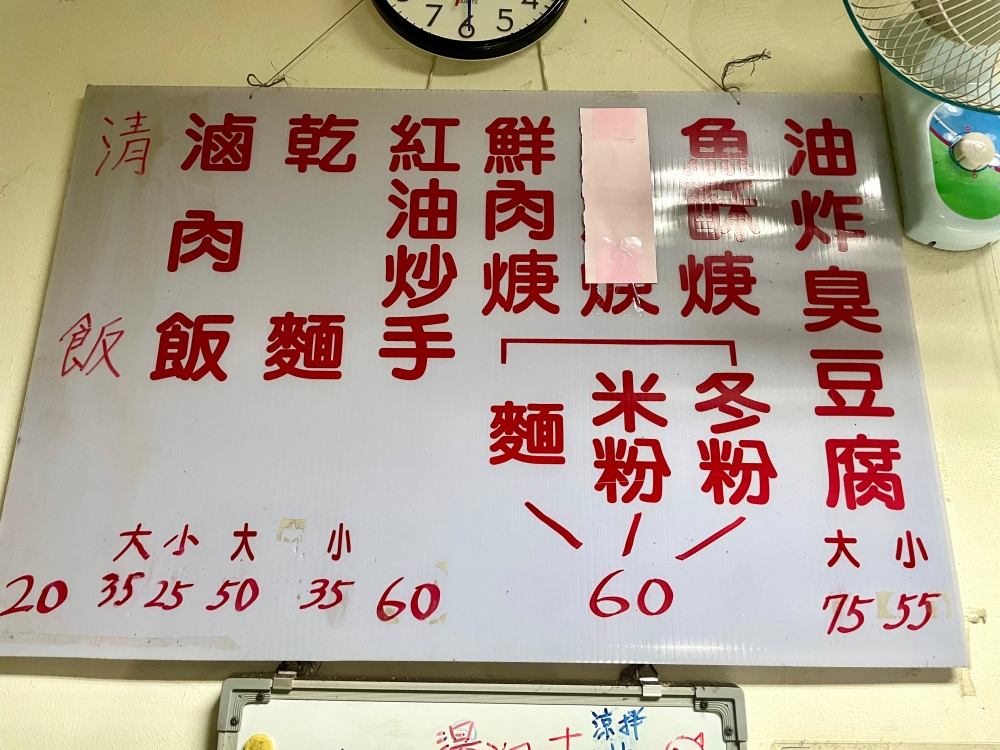 7 6 5 4
油炸臭豆腐
大 小
75 55
魚酥焿
焿
鮮肉焿
麵
米粉
冬粉
60
紅油炒手
60
乾麵
大 小
50 35
滷肉飯
大 小
35 25
清飯
20
涼拌
湯